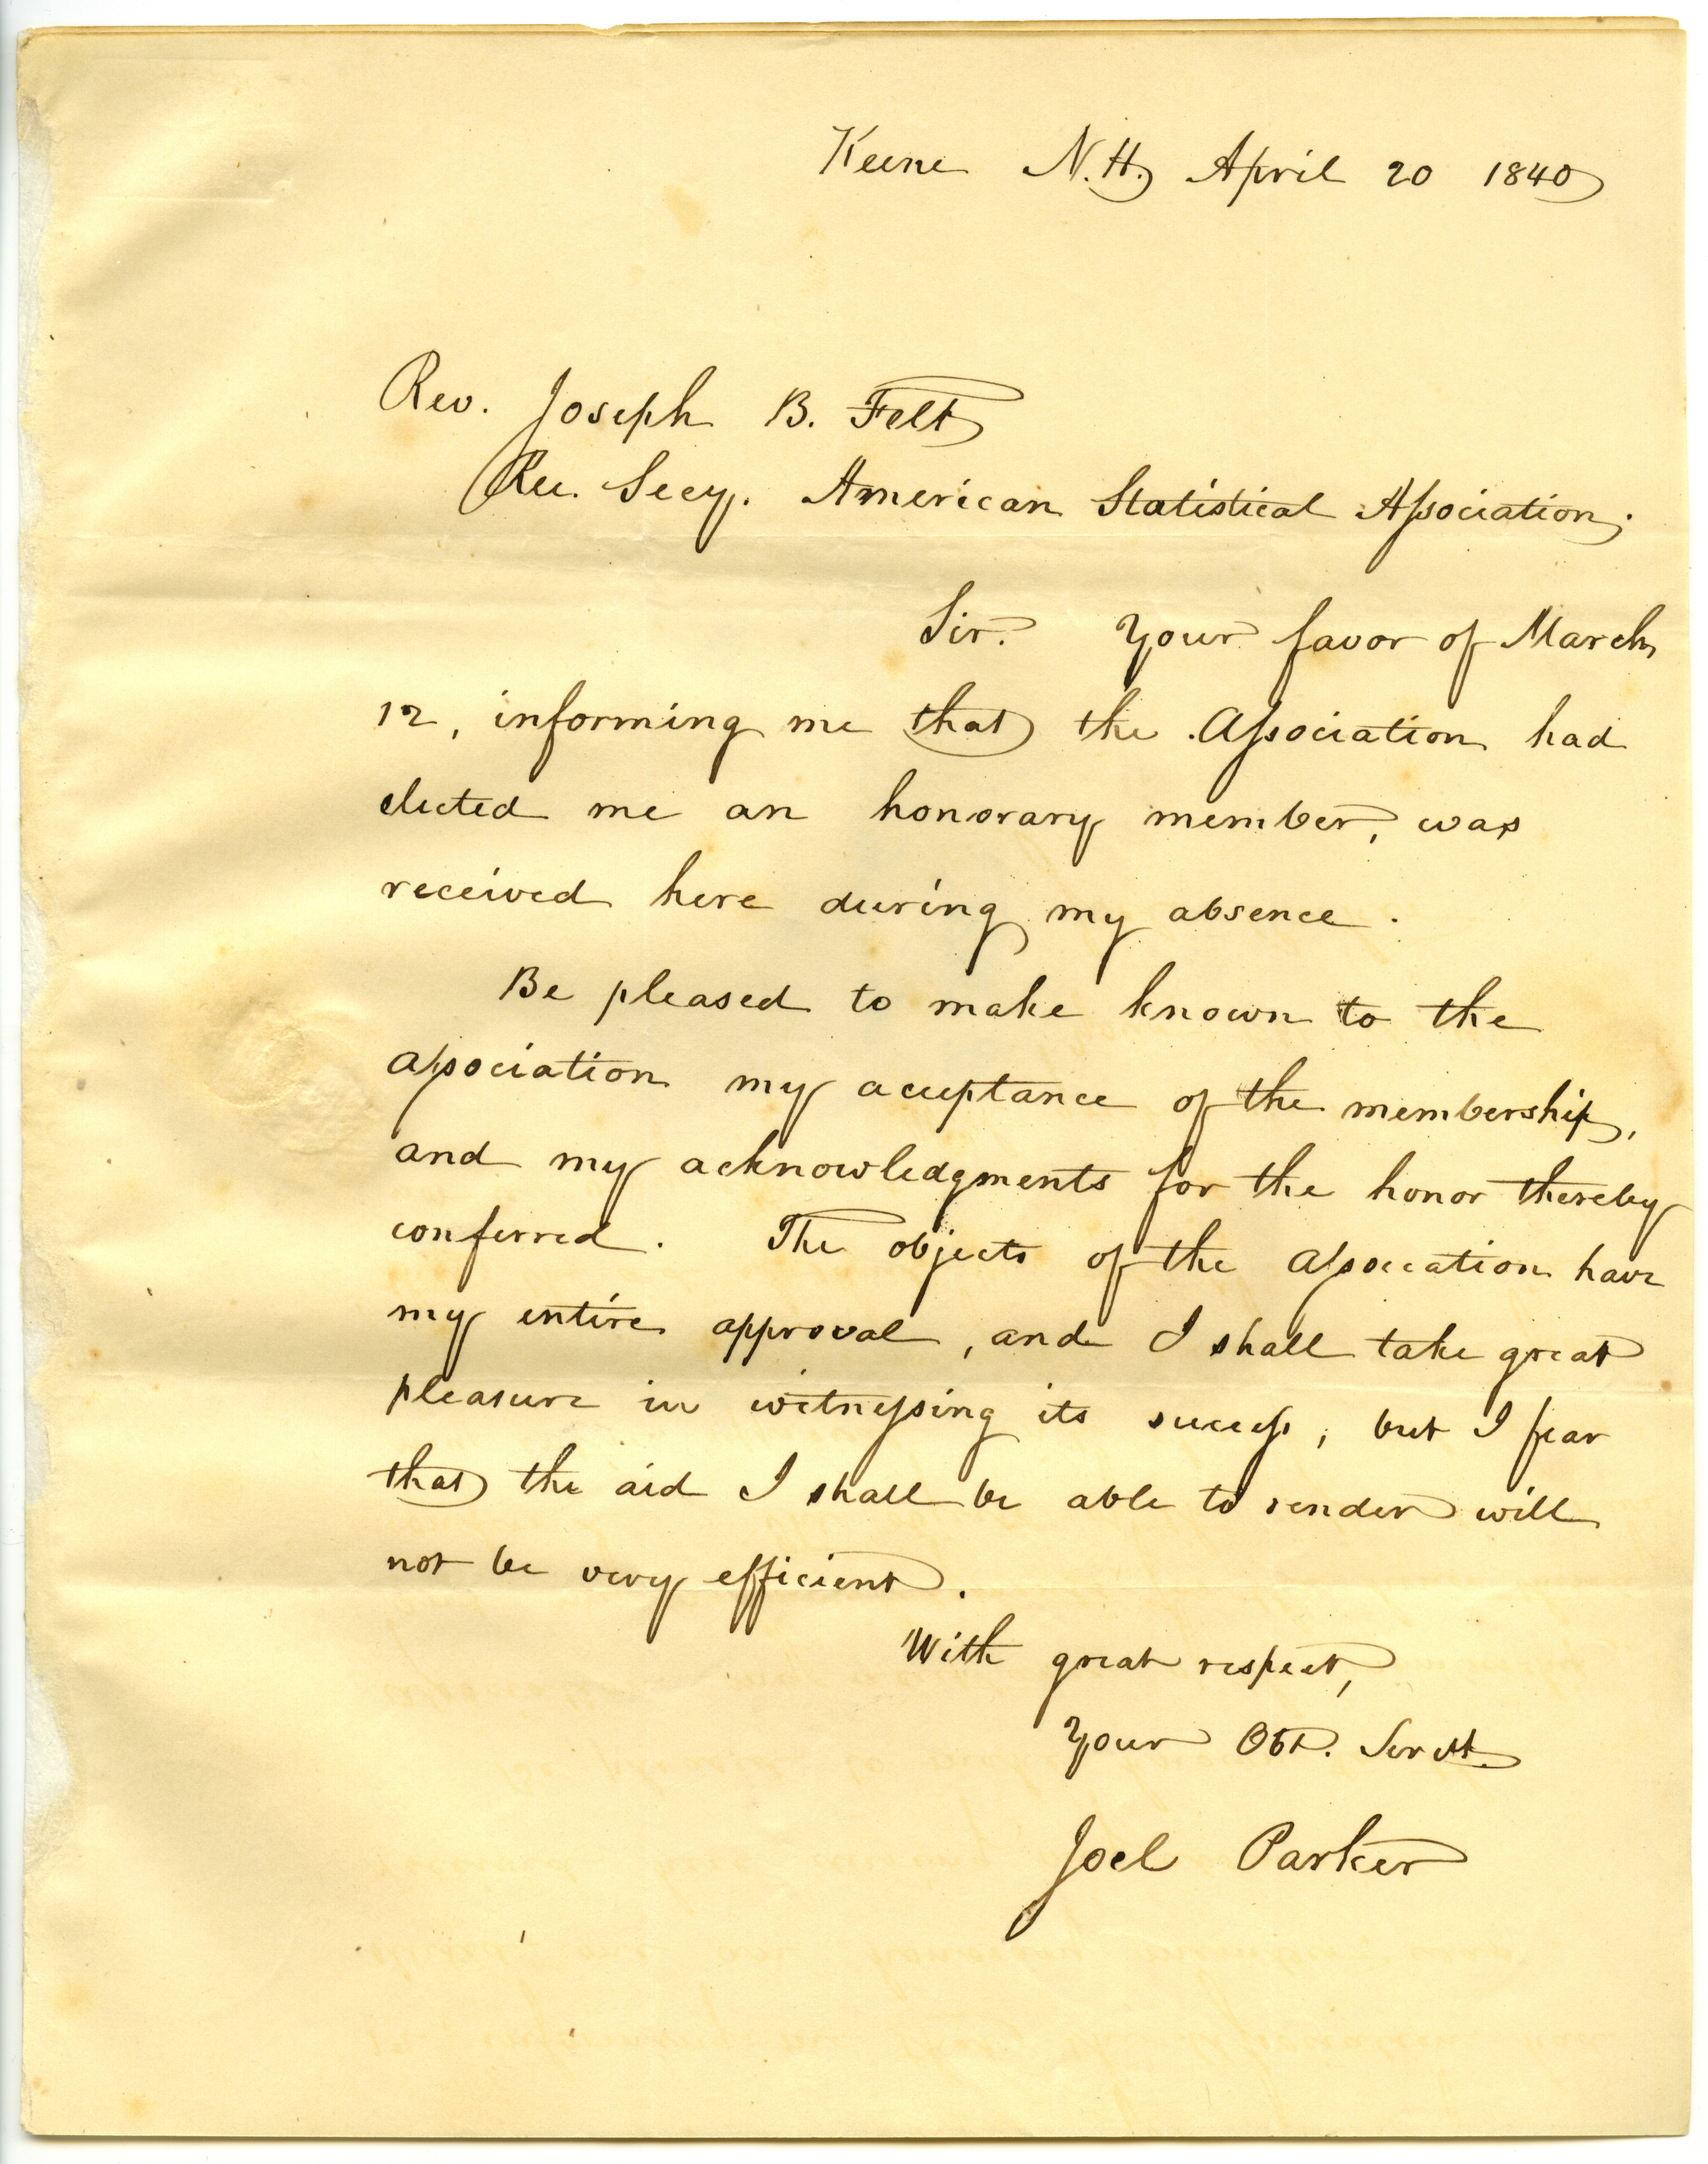 Keene N.H. April 20 1840
Rev. Joseph B. Felt
Rec. Secy. American Statistical Association.
Sir. Your favor of March
12, informing me that the Association had
elected me an honorary member, was
received here during my absence.
Be pleased to make known to the
association my acceptance of the membership,
and my acknowledgments for the honor thereby
conferred. The objects of the association have
my entire approval, and I shall take great
pleasure in witnessing its success, but I fear
that the aid I shall be able to render will
not be very efficient.
With great respect,
Your Obt. Servt.
Joel Parker